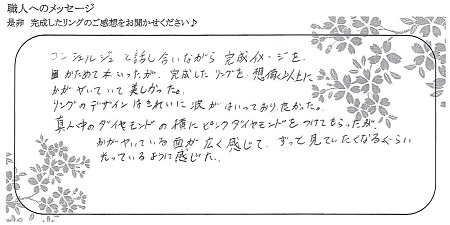 職人へのメッセージ
是非 完成したリングのご感想をお聞かせください♪
コンシェルジュと話し合いながら完成イメージを
固めて本いったが、完成したリングを、想像以上に
かがやいていて美しかった。
リングのデザインはきれいに波がはいっており、良かった。
真ん中のダイヤモンドの横にピンクダイヤモンドをつけてもらったが、
かがやいている面が広く感じて、ずっと見ていたくなるぐらい
光っているように感じた。